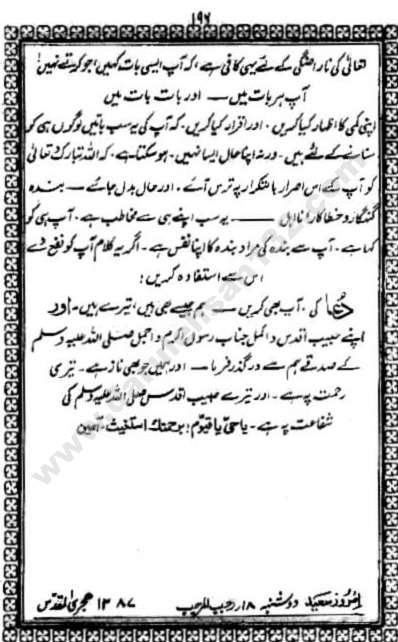 ۱۹۶
تعالیٰ کی ناراضگی کے لئے یہی کافی ہے، کہ آپ ایسی بات کہیں، جو کرتے نہیں!
آپ ہر بات میں — اور بات بات میں
اپنی کمی کا اظہار کیا کریں۔ اور اقرار کیا کریں۔ کہ آپ کی یہ سب باتیں لوگوں ہی کو
سنانے کے لئے ہیں۔ ورنہ اپنا حال ایسا نہیں۔ ہو سکتا ہے، کہ اللہ تبارک تعالیٰ
کو آپ کے اس اصرار بالتکرار پہ ترس آئے۔ اور حال بدل جائے — بندہ
گنہگار و خطاکار! نااہل — یہ سب اپنے ہی سے مخاطب ہے۔ آپ ہی کو
کہا ہے۔ آپ سے بندہ کی مراد بندہ کا اپنا نفس ہے۔ اگر یہ کلام آپ کو نفع دے
اس سے استفادہ کریں!
دُعا کی۔ آپ بھی کریں — ہم جیسے بھی ہیں، تیرے ہیں۔ اور
اپنے حبیب اقدس و اکمل جناب رسول اکرم و اجمل صلی اللہ علیہ وسلم
کے صدقے ہم سے درگذر فرما — اور ہمیں جو بھی ناز ہے۔ تیری
رحمت پہ ہے۔ اور تیرے حبیب اقدس صلی اللہ علیہ وسلم کی
شفاعت پہ ہے۔ یاحی یا قیوم! برحمتك استغیث۔ آمین
www.darulahsan
امروز سعید دوشنبہ ۱۸ رجب المرجب ۱۳۸۷ ہجری المقدس